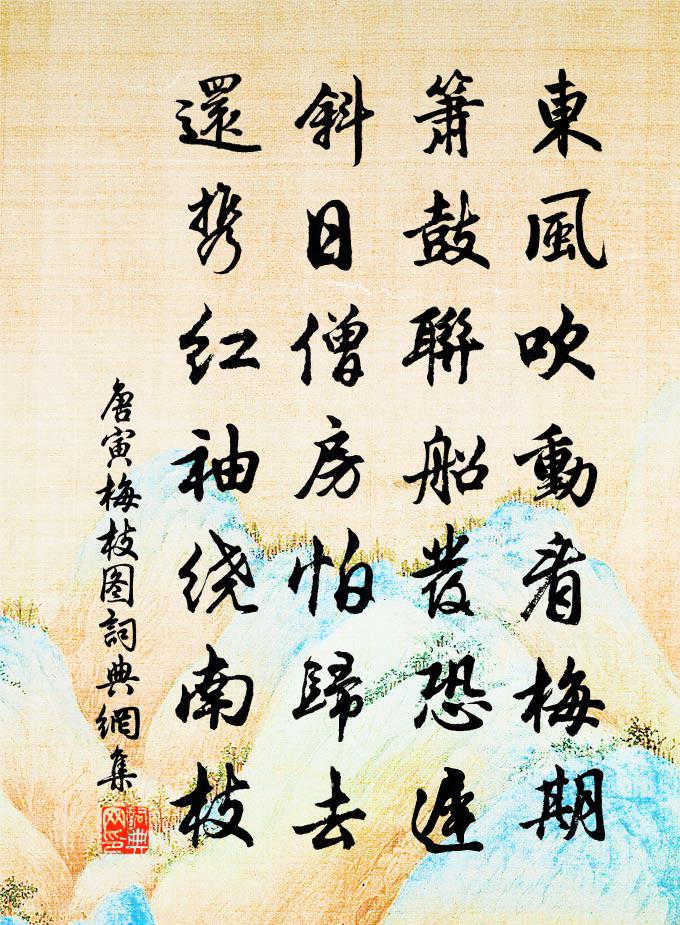 東風吹動看梅期
簫鼓聯船發恐遲
斜日僧房怕歸去
還携红袖绕南枝
唐寅梅枝图詞典網集
詞典